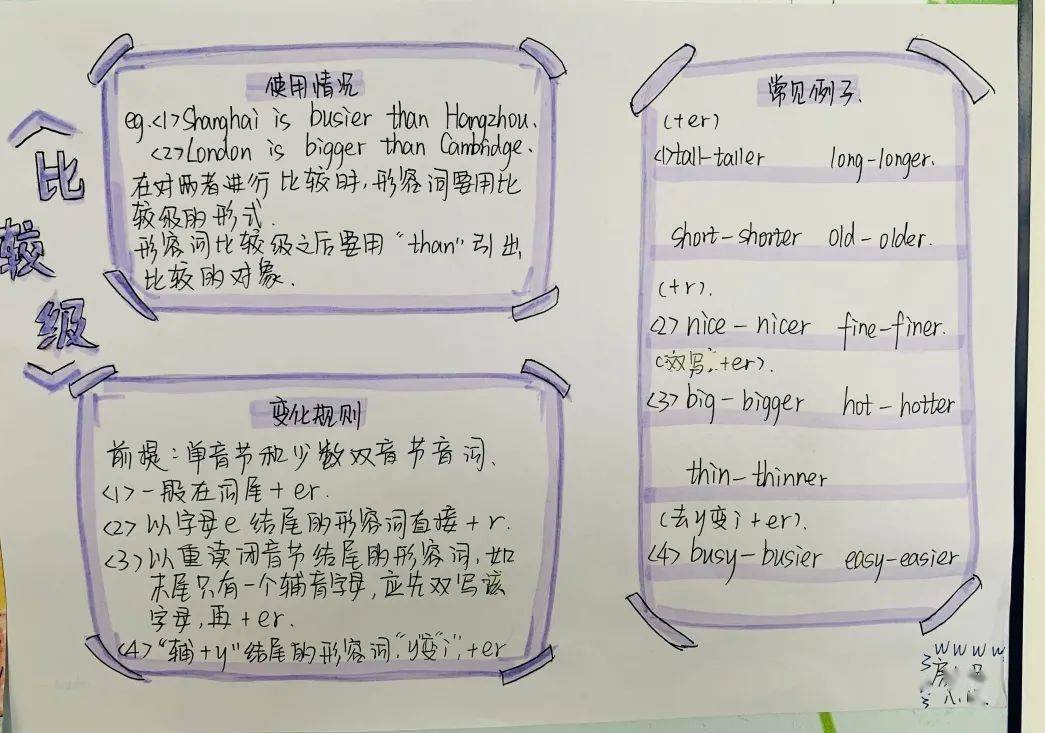 《比较级》
使用情况
eg.<1>Shanghai is busier than Hangzhou.
<2>London is bigger than Cambridge.
在对两者进行比较时,形容词要用比
较级的形式.
形容词比较级之后要用“than”引出
比较的对象.
变化规则
前提:单音节和少数双音节音词.
<1>一般在词尾+er.
<2>以字母e结尾的形容词直接+r.
<3>以重读闭音节结尾的形容词,如
末尾只有一个辅音字母,应先双写该
字母,再+er.
<4>“辅+y”结尾的形容词,“y”变“i”,+er
常见例子.
(+er)
<1>tall-taller long-longer.
short-shorter old-older.
(+r).
<2>nice-nicer fine-finer.
(双写,+er).
<3>big-bigger hot-hotter
thin-thinner
(去y变i+er).
<4>busy-busier easy-easier
wwww